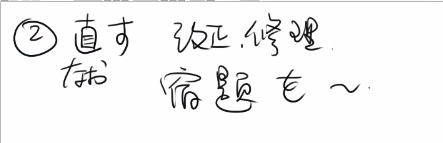 ② 直す 改正、修理
なお 宿題を〜.